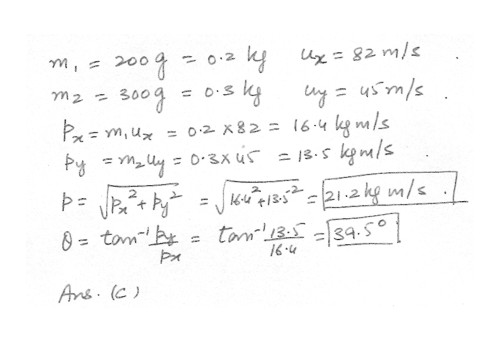 m₁ = 200g = 0.2 kg uₓ = 82 m/s .
m₂ = 300g = 0.3 kg uy = 45 m/s .
Pₓ = m₁uₓ = 0.2 x 82 = 16.4 kg m/s
Py = m₂uy = 0.3 x 45 = 13.5 kg m/s .
P = √(Pₓ² + Py²) = √(16.4² + 13.5²) = 21.2 kg m/s .
θ = tan⁻¹ Py/Pₓ = tan⁻¹ 13.5/16.4 = 39.5°
Ans. (C)